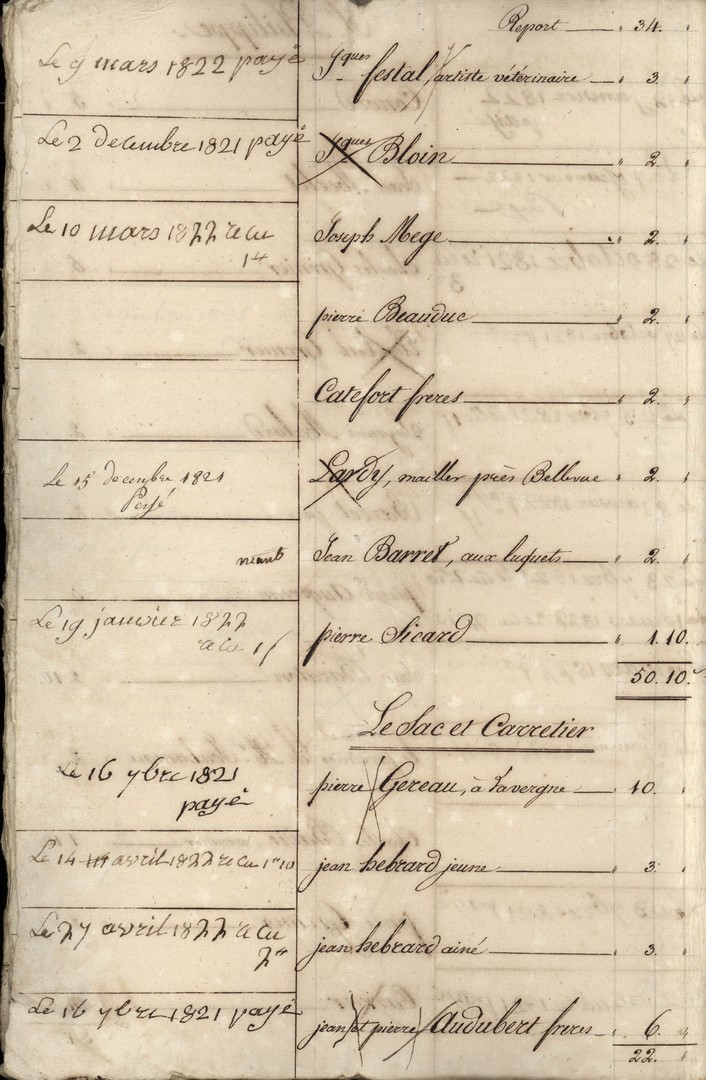 Report — " 34. "
Le 9 mars 1822 payé Jques festal, artiste vétérinaire — " 3. "
Le 2 decembre 1821 payé Jques Bloin — " 2. "
Le 10 mars 1822 recu Joseph Mege — " 2. "
1#
pierre Beauduc — " 2. "
Catefort freres — " 2. "
Le 15 decembre 1821 Lardy, mailler près Bellevue " 2. "
Payé
neant Jean Barret, aux luquets — " 2. "
Le 19 janvier 1822 pierre Sicard — " 1. 10.
recu 1
50. 10.
Le Sac et Carretier
Le 16 9bre 1821 pierre Gereau, à Lavergne — 10. "
payé
Le 14 avril 1822 recu 1# 10 jean hebrard jeune — " 3. "
Le 27 avril 1822 recu jean hebrard ainé — " 3. "
2#
Le 16 9bre 1821 payé jean et pierre Audubert freres — " 6. "
22. "